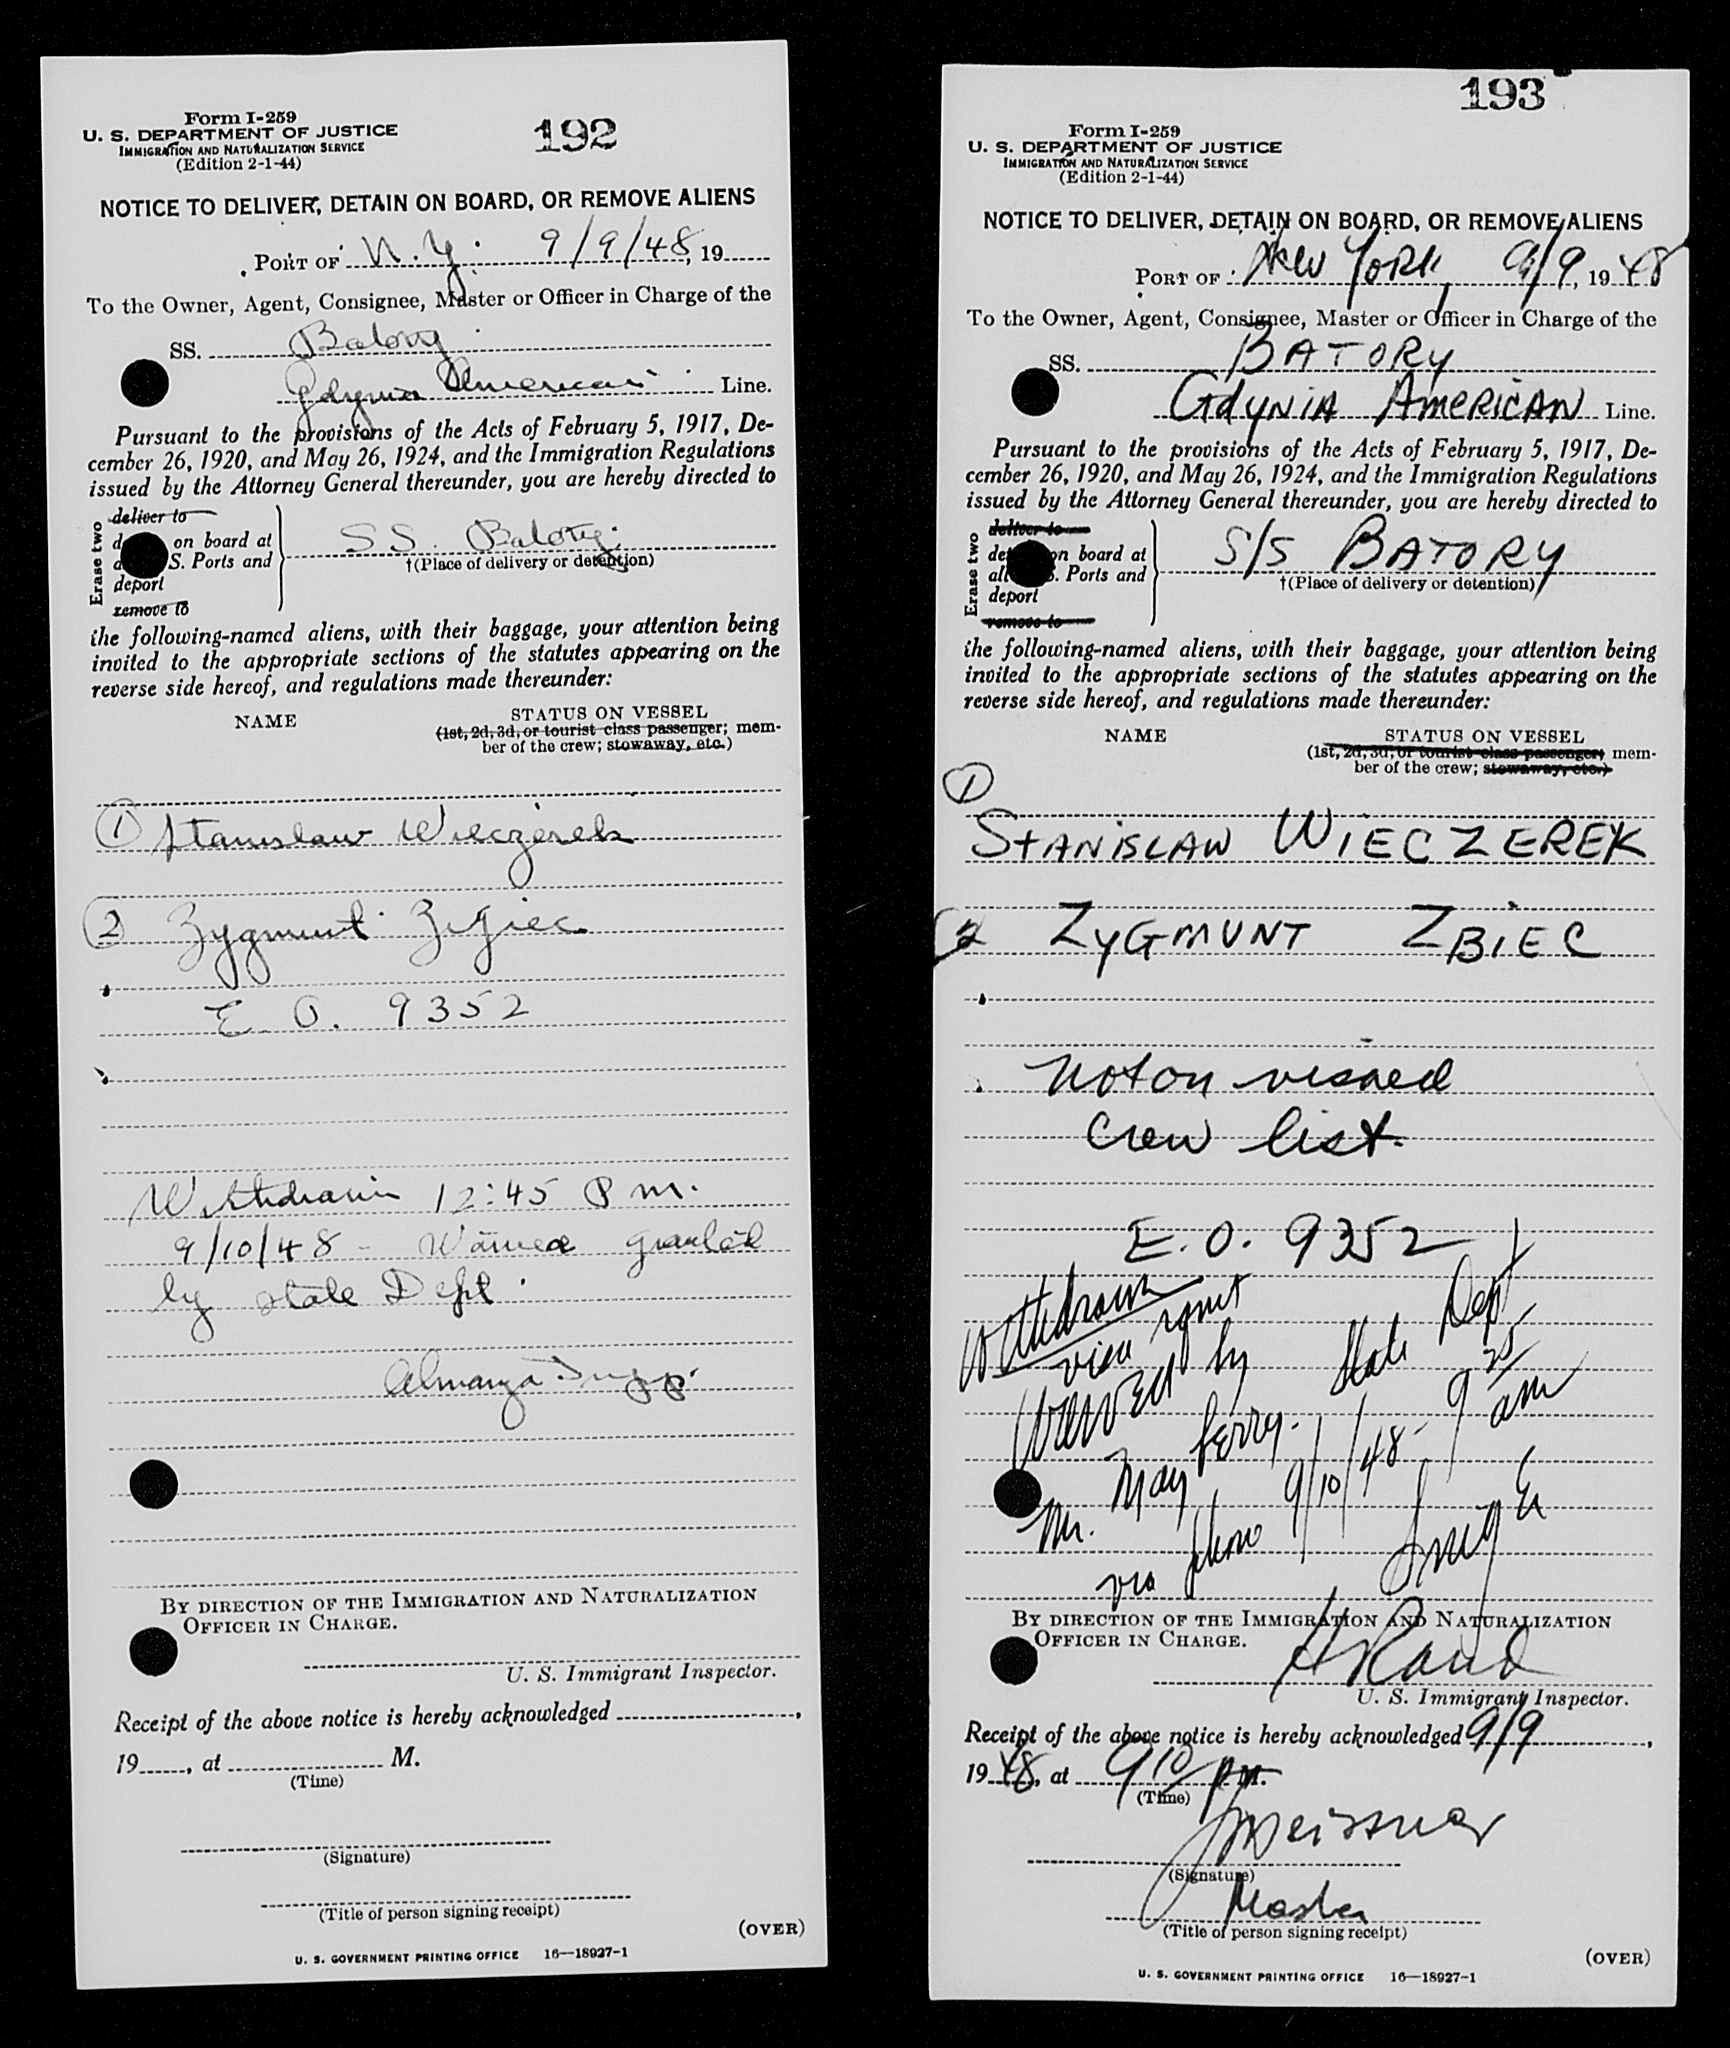 Form I-259
U. S. DEPARTMENT OF JUSTICE
IMMIGRATION AND NATURALIZATION SERVICE
(Edition 2-1-44)
192
NOTICE TO DELIVER, DETAIN ON BOARD, OR REMOVE ALIENS
PORT OF N. Y. 9/9/48, 19
To the Owner, Agent, Consignee, Master or Officer in Charge of the
SS. Batory
Gdynia American Line.
Pursuant to the provisions of the Acts of February 5, 1917, De-
cember 26, 1920, and May 26, 1924, and the Immigration Regulations
issued by the Attorney General thereunder, you are hereby directed to
Erase two
deliver to
on board at
S. Ports and
deport
remove to
SS. Batory
†(Place of delivery or detention)
the following-named aliens, with their baggage, your attention being
invited to the appropriate sections of the statutes appearing on the
reverse side hereof, and regulations made thereunder:
NAME
STATUS ON VESSEL
(1st, 2d, 3d, or tourist class passenger; mem-
ber of the crew; stowaway, etc.)
1 Stanislaw Wieczerek
2 Zygmunt
E. O. 9352
Withdrawn 12:45 P m.
9/10/48 - Waived granted
by State Dept.
BY DIRECTION OF THE IMMIGRATION AND NATURALIZATION
OFFICER IN CHARGE.
U. S. Immigrant Inspector.
Receipt of the above notice is hereby acknowledged
19, at M.
(Time)
(Signature)
(Title of person signing receipt)
(OVER)
U. S. GOVERNMENT PRINTING OFFICE 16—18927-1
193
Form I-259
U. S. DEPARTMENT OF JUSTICE
IMMIGRATION AND NATURALIZATION SERVICE
(Edition 2-1-44)
NOTICE TO DELIVER, DETAIN ON BOARD, OR REMOVE ALIENS
PORT OF New York, 9/9, 1948
To the Owner, Agent, Consignee, Master or Officer in Charge of the
SS. BATORY
GdyNiA AMERiCAN Line.
Pursuant to the provisions of the Acts of February 5, 1917, De-
cember 26, 1920, and May 26, 1924, and the Immigration Regulations
issued by the Attorney General thereunder, you are hereby directed to
Erase two
deliver to
on board at
Ports and
deport
remove to
S/S BATORY
†(Place of delivery or detention)
the following-named aliens, with their baggage, your attention being
invited to the appropriate sections of the statutes appearing on the
reverse side hereof, and regulations made thereunder:
NAME
STATUS ON VESSEL
(1st, 2d, 3d, or tourist class passenger; mem-
ber of the crew; stowaway, etc.)
1
STANiSLAW WiECZEREK
2 ZYGMUNT ZBiEC
Not on visaed
crew list.
E. O. 9352
Withdrawn
visa rqmt
WAIVED by State Dept
Mr. May Perry. 9 25 am
via phone 9/10/48 -
BY DIRECTION OF THE IMMIGRATION AND NATURALIZATION
OFFICER IN CHARGE.
H Rand
U. S. Immigrant Inspector.
Receipt of the above notice is hereby acknowledged 9/9,
1948, at 9 10 pm M.
(Time)
(Signature)
Master
(Title of person signing receipt)
(OVER)
U. S. GOVERNMENT PRINTING OFFICE 16—18927-1